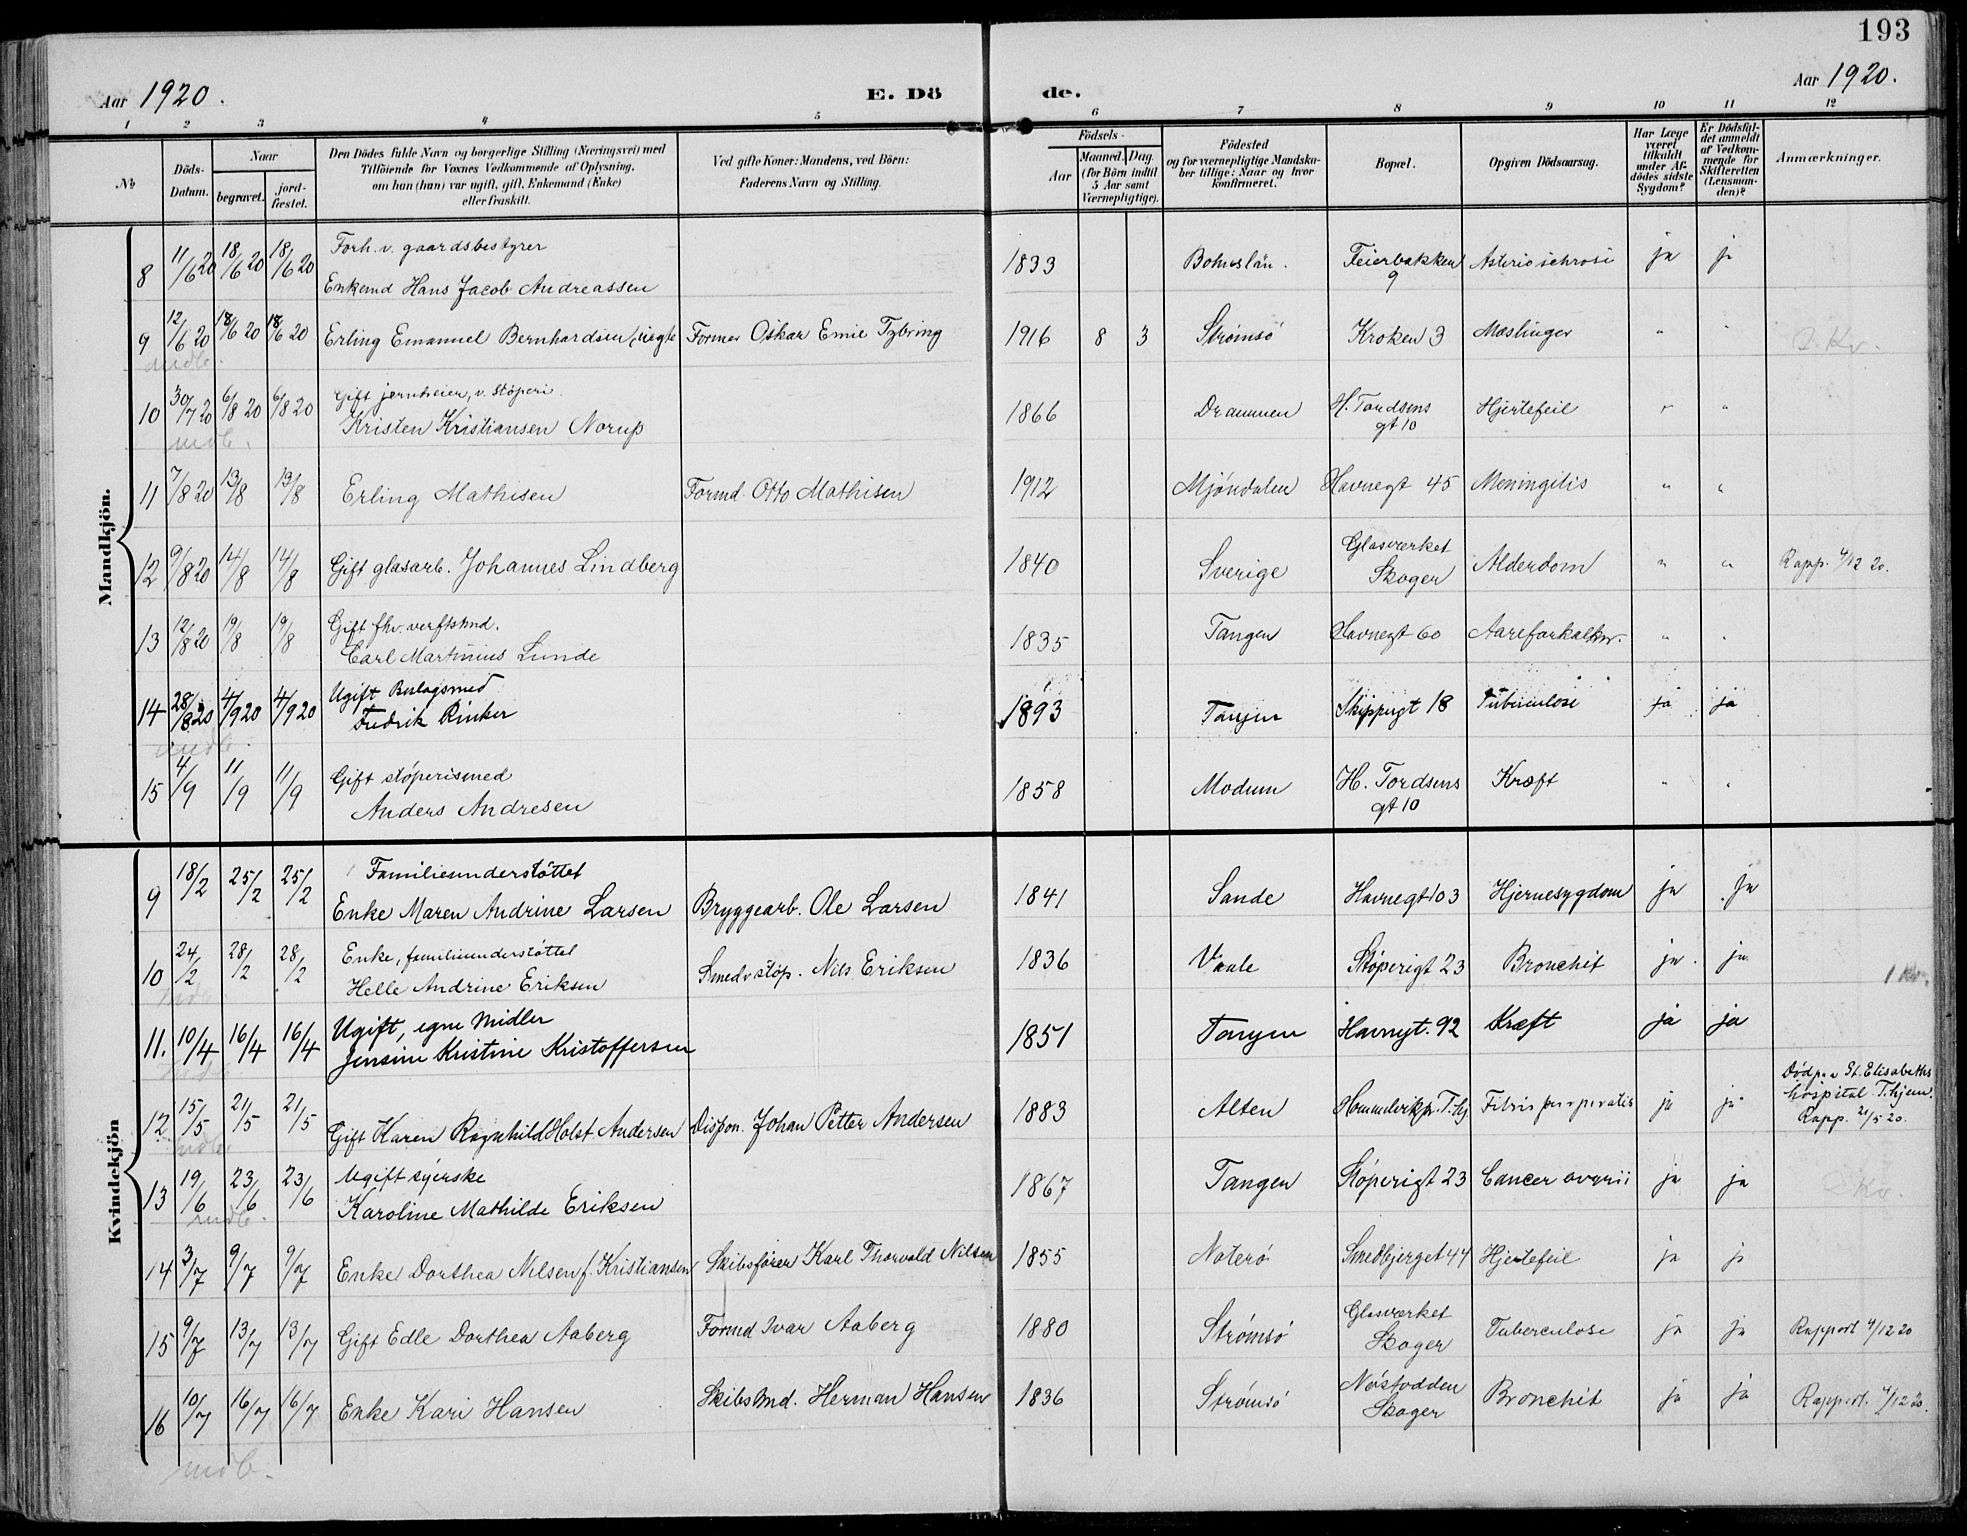 193
Aar 1920.
E. Dö de.
Aar 1920.
1 2 3 4 5 6 7 8 9 10 11 12
No
Döds-Datum.
Naar
begravet.
jord-fæstet.
Den Dödes fulde Navn og borgerlige Stilling (Næringsvei) med
Tilföiende for Voxnes Vedkommende af Oplysning,
om han (hun) var ugift, gift, Enkemand (Enke)
eller fraskilt.
Ved gifte Koner: Mandens, ved Börn:
Faderens Navn og Stilling.
Födsels-
Aar
Maaned. Dag.
(for Börn indtil
5 Aar samt
Værnepligtige).
Födested
og for værnepligtige Mandska-
ber tillige: Naar og hvor
konfirmeret.
Bopæl.
Opgiven Dödsaarsag.
Har Læge
været
tilkaldt
under Af-
dödes sidste
Sygdom?
Er Dödsfal-
det anmeldt
af Vedkom-
mende for
Skifteretten
(Lensman-
den)?
Anmærkninger.
Mandkjön.
8 11/6 20 18/6 20 18/6 20 Forh. v. gaardsbestyrer
Enkemd Hans Jacob Andreassen 1833 Bohuslän. Feierbakken 9 ja ja
9 12/6 20 18/6 20 18/6 20 Erling Emanuel Bernhardsen, uegte Former Oskar Emil Tybring 1916 8 3 Strømsö Kroken 3 Mæslinger " "
mdb.
10 30/7 20 6/8 20 6/8 20 Gift jernheier, v. Stöperi
Kristen Kristiansen Norup 1866 Drammen H. Tordsens gt 10 Hjertefeil " "
mdb.
11 7/8 20 13/8 13/8 Erling Mathisen Formd. Otto Mathisen 1912 Mjöndalen Havnegt 45 Meningitis " "
12 9/8 20 14/8 14/8 Gift glasarb. Johannes Lindberg 1840 Sverige Glasværket Skoger Alderdom " " Rapp. 4/12 20.
13 12/8 20 19/8 19/8 Gift fhv. verftsmd.
Carl Martinius Lunde 1835 Tangen Havnegt 60 Aareforkalkn. " "
14 28/8 20 4/9 20 4/9 20 Ugift
Fredrik Rinker 1893 Tangen Skippergt 18 Tuberculose ja ja
mdb.
15 4/9 11/9 11/9 Gift stöperismed
Anders Andresen 1858 Modum H. Tordsens gt 10 Kræft " "
Kvindekjön
9 18/2 25/2 25/2 Familieunderstöttet
Enke Maren Andrine Larsen Bryggearb. Ole Larsen 1841 Sande Havnegt 103 Hjernesygdom ja ja
10 24/2 28/2 28/2 Enke, familieunderstöttet
Helle Andrine Eriksen Smed v stöp. Nils Eriksen 1836 Vaale Stöperigt 23 Bronchit ja ja 1 Kv.
mdb.
11. 10/4 16/4 16/4 Ugift, egne Midler
Jensine Kristine Kristoffersen 1851 Tangen Havnegt. 92 Kræft ja ja
mdb.
12 15/5 21/5 21/5 Gift Karen Ragnhild Holst Andersen Dispon. Johan Petter Andersen 1883 Alten ja ja Död paa St. Elisabeths
hospital T.hjem.
Rapp. 21/5 20.
mdb.
13 19/6 23/6 23/6 Ugift syerske
Karoline Mathilde Eriksen 1867 Tangen Stöperigt 23 Cancer ovarii ja ja
mdb.
14 3/7 9/7 9/7 Enke Dorthea Nilsen f. Kristiansen Skibsförer Karl Thorvald Nilsen 1855 Noterö Smedbjerget 44 Hjertefeil ja ja
15 9/7 13/7 13/7 Gift Edle Dorthea Aaberg Formd Ivar Aaberg 1880 Strømsö Glasværket Skoger Tuberculose ja ja Rapport 4/12 20
16 10/7 16/7 16/7 Enke Kari Hansen Skibsmd. Herman Hansen 1836 Strømsö Nöstodden Skoger Bronchit ja ja Rapport. 4/12 20.
mdb.